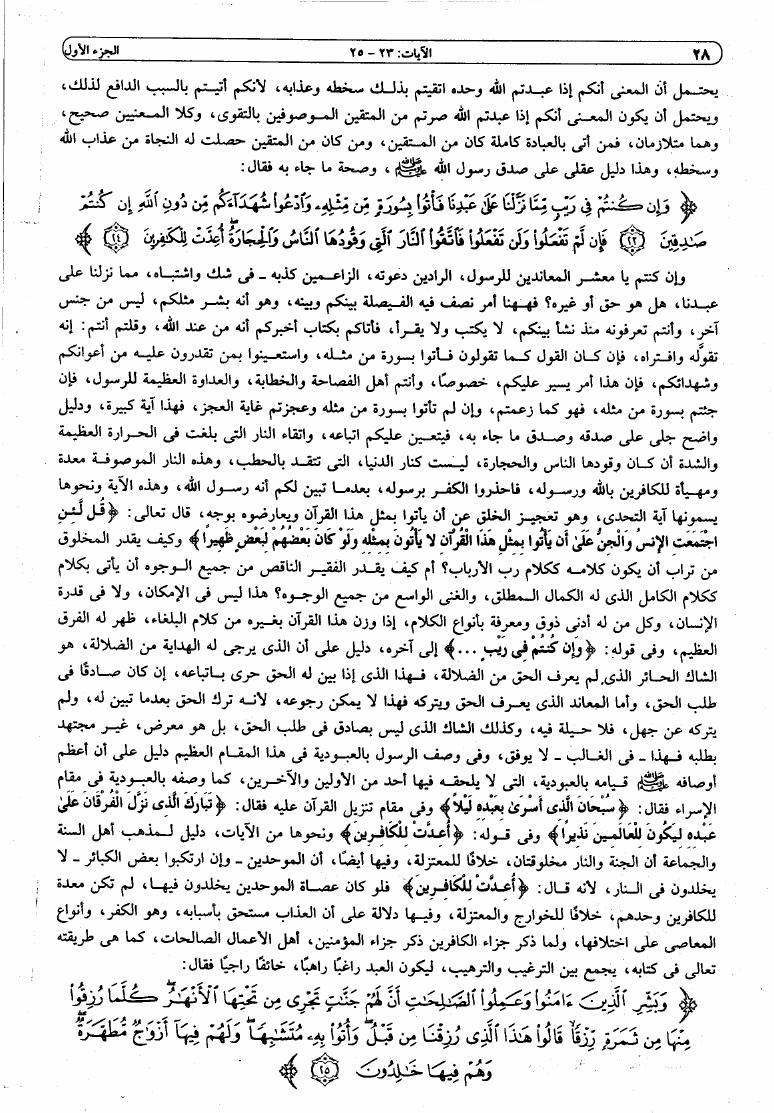 ٢٨ الآيات: ٢٣ - ٢٥ الجزء الأول
يحتمل أن المعنى أنكم إذا عبدتم الله وحده اتقيتم بذلك سخطه وعذابه، لأنكم أتيتم بالسبب الدافع لذلك،
ويحتمل أن يكون المعنى أنكم إذا عبدتم الله صرتم من المتقين الموصوفين بالتقوى، وكلا المعنيين صحيح،
وهما متلازمان، فمن أتى بالعبادة كاملة كان من المتقين، ومن كان من المتقين حصلت له النجاة من عذاب الله
وسخطه، وهذا دليل عقلى على صدق رسول الله ﷺ، وصحة ما جاء به فقال:
﴿ وَإِن كُنتُمْ فِى رَيْبٍ مِّمَّا نَزَّلْنَا عَلَىٰ عَبْدِنَا فَأْتُوا بِسُورَةٍ مِّن مِّثْلِهِۦ وَادْعُوا شُهَدَآءَكُم مِّن دُونِ اللَّهِ إِن كُنتُمْ
صَـٰدِقِينَ ٢٣ فَإِن لَّمْ تَفْعَلُوا وَلَن تَفْعَلُوا فَاتَّقُوا النَّارَ الَّتِى وَقُودُهَا النَّاسُ وَالْحِجَارَةُ أُعِدَّتْ لِلْكَـٰفِرِينَ ٢٤ ﴾
وإن كنتم يا معشر المعاندين للرسول، الرادين دعوته، الزاعمين كذبه - فى شك واشتباه، مما نزلنا على
عبدنا، هل هو حق أو غيره؟ فههنا أمر نصف فيه الفيصلة بينكم وبينه، وهو أنه بشر مثلكم، ليس من جنس
آخر، وأنتم تعرفونه منذ نشأ بينكم، لا يكتب ولا يقرأ، فأتاكم بكتاب أخبركم أنه من عند الله، وقلتم أنتم: إنه
تقوَّله وافتراه، فإن كان القول كما تقولون فأتوا بسورة من مثله، واستعينوا بمن تقدرون عليه من أعوانكم
وشهدائكم، فإن هذا أمر يسير عليكم، خصوصًا، وأنتم أهل الفصاحة والخطابة، والعداوة العظيمة للرسول، فإن
جئتم بسورة من مثله، فهو كما زعمتم، وإن لم تأتوا بسورة من مثله وعجزتم غاية العجز، فهذا آية كبيرة، ودليل
واضح جلى على صدقه وصدق ما جاء به، فيتعين عليكم اتباعه، واتقاء النار التى بلغت فى الحرارة العظيمة
والشدة أن كان وقودها الناس والحجارة، ليست كنار الدنيا، التى تتقد بالحطب، وهذه النار الموصوفة معدة
ومهيأة للكافرين بالله ورسوله، فاحذروا الكفر برسوله، بعدما تبين لكم أنه رسول الله، وهذه الآية ونحوها
يسمونها آية التحدى، وهو تعجيز الخلق عن أن يأتوا بمثل هذا القرآن ويعارضوه بوجه، قال تعالى: ﴿قُل لَّئِنِ
اجْتَمَعَتِ الإِنسُ وَالْجِنُّ عَلَىٰ أَن يَأْتُوا بِمِثْلِ هَذَا الْقُرْآنِ لا يَأْتُونَ بِمِثْلِهِ وَلَوْ كَانَ بَعْضُهُمْ لِبَعْضٍ ظَهِيرًا﴾ وكيف يقدر المخلوق
من تراب أن يكون كلامه ككلام رب الأرباب؟ أم كيف يقدر الفقير الناقص من جميع الوجوه أن يأتى بكلام
ككلام الكامل الذى له الكمال المطلق، والغنى الواسع من جميع الوجوه؟ هذا ليس فى الإمكان، ولا فى قدرة
الإنسان، وكل من له أدنى ذوق ومعرفة بأنواع الكلام، إذا وزن هذا القرآن بغيره من كلام البلغاء، ظهر له الفرق
العظيم، وفى قوله: ﴿وَإِن كُنتُمْ فِي رَيْبٍ ...﴾ إلى آخره، دليل على أن الذى يرجى له الهداية من الضلالة، هو
الشاك الحائر الذى لم يعرف الحق من الضلالة، فهذا الذى إذا بين له الحق حرى باتباعه، إن كان صادقًا فى
طلب الحق، وأما المعاند الذى يعرف الحق ويتركه فهذا لا يمكن رجوعه، لأنه ترك الحق بعدما تبين له، ولم
يتركه عن جهل، فلا حيلة فيه، وكذلك الشاك الذى ليس بصادق فى طلب الحق، بل هو معرض، غير مجتهد
بطلبه فهذا - فى الغالب - لا يوفق، وفى وصف الرسول بالعبودية فى هذا المقام العظيم دليل على أن أعظم
أوصافه ﷺ قيامه بالعبودية، التى لا يلحقه فيها أحد من الأولين والآخرين، كما وصفه بالعبودية فى مقام
الإسراء فقال: ﴿سُبْحَانَ الَّذِي أَسْرَىٰ بِعَبْدِهِ لَيْلاً﴾ وفى مقام تنزيل القرآن عليه فقال: ﴿تَبَارَكَ الَّذِي نَزَّلَ الْفُرْقَانَ عَلَىٰ
عَبْدِهِ لِيَكُونَ لِلْعَالَمِينَ نَذِيرًا﴾ وفى قوله: ﴿أُعِدَّتْ لِلْكَافِرِينَ﴾ ونحوها من الآيات، دليل لمذهب أهل السنة
والجماعة أن الجنة والنار مخلوقتان، خلافًا للمعتزلة، وفيها أيضًا، أن الموحدين - وإن ارتكبوا بعض الكبائر - لا
يخلدون فى النار، لأنه قال: ﴿أُعِدَّتْ لِلْكَافِرِينَ﴾ فلو كان عصاة الموحدين يخلدون فيها، لم تكن معدة
للكافرين وحدهم، خلافًا للخوارج والمعتزلة، وفيها دلالة على أن العذاب مستحق بأسبابه، وهو الكفر، وأنواع
المعاصى على اختلافها، ولما ذكر جزاء الكافرين ذكر جزاء المؤمنين، أهل الأعمال الصالحات، كما هى طريقته
تعالى فى كتابه، يجمع بين الترغيب والترهيب، ليكون العبد راغبًا راهبًا، خائفًا راجيًا فقال:
﴿ وَبَشِّرِ الَّذِينَ ءَامَنُوا وَعَمِلُوا الصَّـٰلِحَـٰتِ أَنَّ لَهُمْ جَنَّـٰتٍ تَجْرِى مِن تَحْتِهَا الْأَنْهَـٰرُ كُلَّمَا رُزِقُوا
مِنْهَا مِن ثَمَرَةٍ رِّزْقًا قَالُوا هَـٰذَا الَّذِى رُزِقْنَا مِن قَبْلُ وَأُتُوا بِهِۦ مُتَشَـٰبِهًا وَلَهُمْ فِيهَآ أَزْوَٰجٌ مُّطَهَّرَةٌ
وَهُمْ فِيهَا خَـٰلِدُونَ ٢٥ ﴾